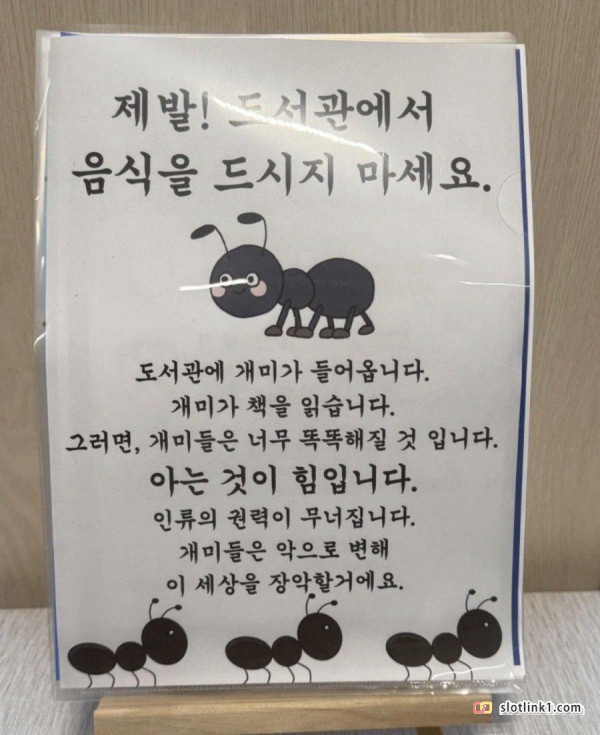 제발! 도서관에서
음식을 드시지 마세요.
도서관에 개미가 들어옵니다.
개미가 책을 읽습니다.
그러면, 개미들은 너무 똑똑해질 것 입니다.
아는 것이 힘입니다.
인류의 권력이 무너집니다.
개미들은 악으로 변해
이 세상을 장악할거에요.
slotlink1.com